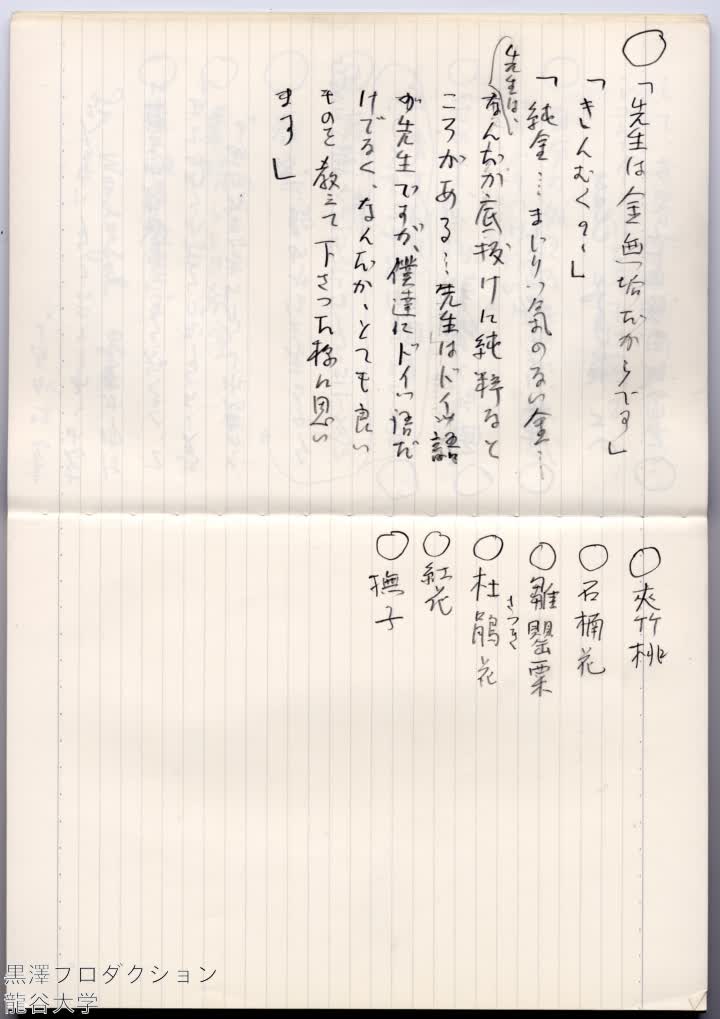 ○「先生は金無垢だからです」
「きんむく？」
「純金…まじりっ気のない金…
先生は、
なんだか底抜けに純粋なと
ころがある…先生はドイツ語
が先生ですが、僕達にドイツ語だ
けでなく、なんだか、とても良い
ものを教えて下さった様に思い
ます」
○夾竹桃
○石楠花
○雛罌粟
○杜鵑花
さつき
○紅花
○撫子
黒澤プロダクション
龍谷大学